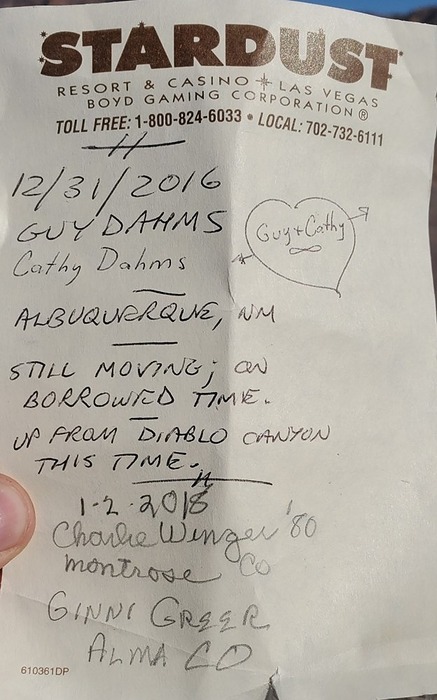 STARDUST
RESORT & CASINO LAS VEGAS
BOYD GAMING CORPORATION ®
TOLL FREE: 1-800-824-6033 • LOCAL: 702-732-6111
12/31/2016
GUY DAHMS
Cathy Dahms
Guy + Cathy
∞
ALBUQUERQUE, NM
STILL MOVING; ON
BORROWED TIME.
UP FROM DIABLO CANYON
THIS TIME.
1-2-2018
Charlie Winger '80
montrose CO
GINNI GREER
ALMA CO
610361DP